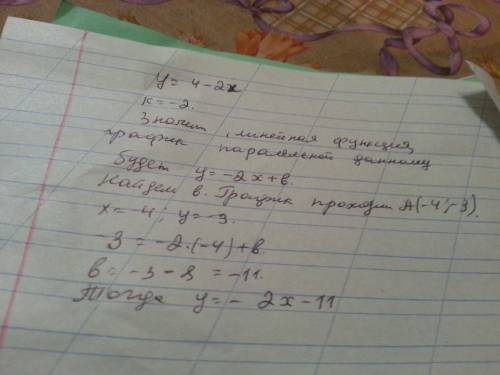 y = 4 - 2x
к = -2.
Значит, линейная функция,
график паралельной данному
будет y = -2x + в.
Найдем в. График проходит A(-4; -3).
x = -4; y = -3.
-3 = -2·(-4) + в.
в = -3 - 8 = -11.
Тогда y = - 2x - 11